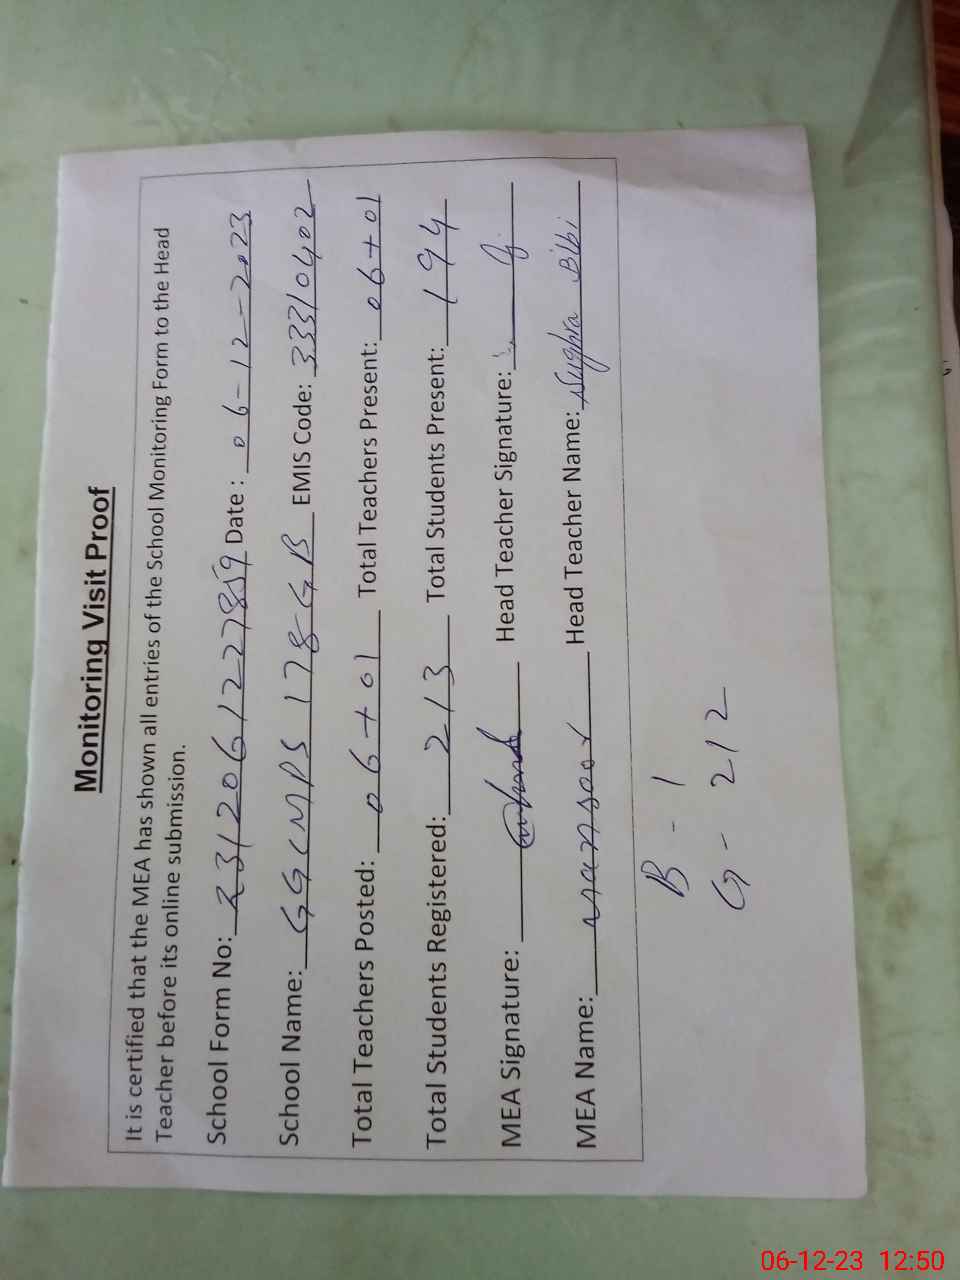 Monitoring Visit Proof
It is certified that the MEA has shown all entries of the School Monitoring Form to the Head
Teacher before its online submission.
School Form No: 2312061227859 Date : 06-12-2023
School Name: GGCMPS 178-GB EMIS Code: 33310402
Total Teachers Posted: 06+01 Total Teachers Present: 06+01
Total Students Registered: 213 Total Students Present: 194
MEA Signature: Head Teacher Signature:
MEA Name: mansoor Head Teacher Name: Sughra Bibi
B - 1
G - 212
06-12-23 12:50